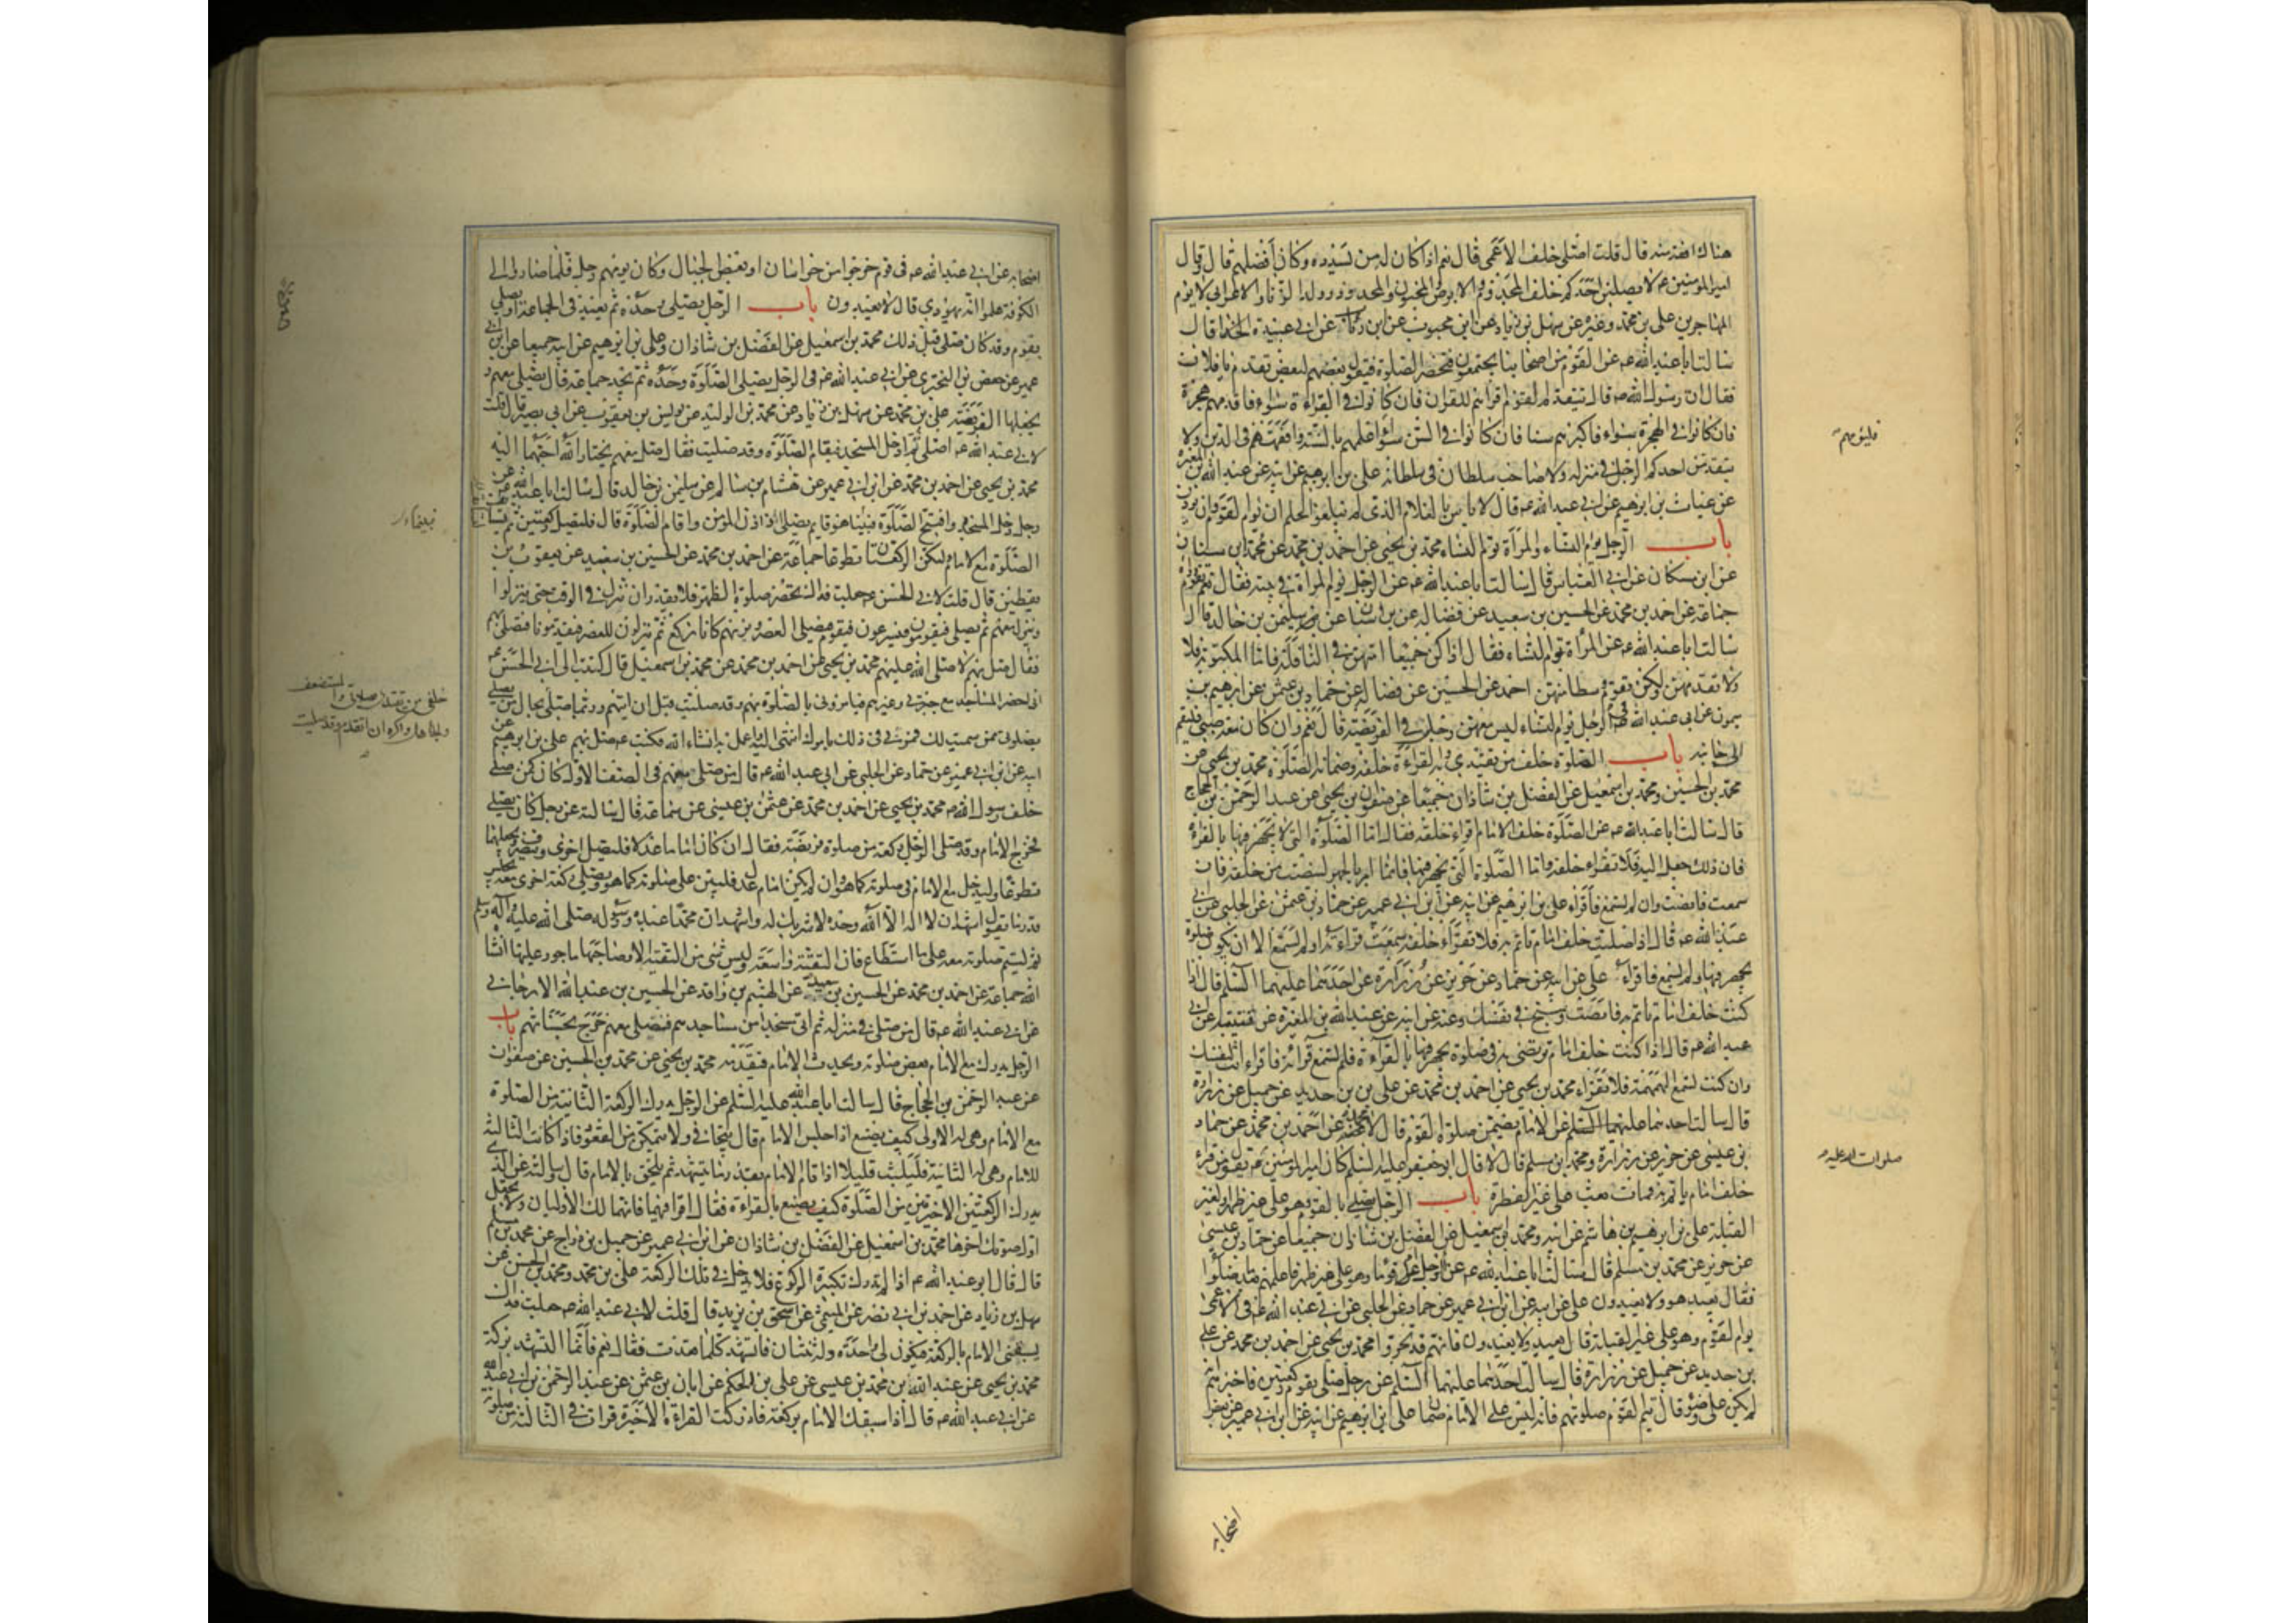 هناك افقه منه قال قلت اصلى خلف الاعمى قال نعم اذا كان له من يسدده وكان افضلهم قال وقال
امير المؤمنين عه لا يصلين احدكم خلف المجذوم والابرص والمجنون والمحدود وولد الزنا والاعرابى لا يؤم
المهاجرين على بن محمد وغيره عن سهل بن زياد عن ابن محبوب عن ابن رئاب عن ابى عبيدة الحذا قال
سالت ابا عبد الله عه عن القوم من اصحابنا يجتمعون فتحضر الصلوة فيقول بعضهم لبعض تقدم يا فلان
فقال ان رسول الله صه قال يتقدم القوم اقراهم للقران فان كانوا فى القراءة سواء فاقدمهم هجرة
فان كانوا فى الهجرة سواء فاكبرهم سنا فان كانوا فى السن سواء فاعلمهم بالسنة وافقههم فى الدين ولا
يتقدمن احدكم الرجل فى منزله ولا صاحب سلطان فى سلطانه على بن ابرهيم عن ابيه عن عبد الله بن المغيرة
عن غياث بن ابرهيم عن ابى عبد الله عه قال لا باس بالغلام الذى لم يبلغ الحلم ان يؤم القوم وان يؤذن
باب الرجل يؤم النساء والمراة تؤم النساء محمد بن يحيى عن احمد بن محمد عن محمد بن سنان
عن ابن مسكان عن ابى العباس قال سالت ابا عبد الله عه عن الرجل يؤم المراة فى بيته فقال نعم تقوم وراه
جماعة عن احمد بن محمد عن الحسين بن سعيد عن فضالة عن بن سنان عن سليمن بن خالد قال
سالت ابا عبد الله عه عن المراة تؤم النساء فقال اذا كن جميعا امتهن فى النافلة فاما المكتوبة فلا
ولا تقدمهن ولكن تقوم وسطا منهن احمد عن الحسين عن فضالة عن حماد بن عثمن عن ابرهيم بن
ميمون عن ابى عبد الله عه فى الرجل يؤم النساء ليس معهن رجل فى الفريضة قال نعم وان كان معه صبى فليقم
الى جانبه باب الصلوة خلف من يقتدى به والقراءة خلفه وضمانه الصلوة محمد بن يحيى عن
محمد بن الحسين ومحمد بن اسمعيل عن الفضل بن شاذان جميعا عن صفوان بن يحيى عن عبد الرحمن بن الحجاج
قال سالت ابا عبد الله عه عن الصلوة خلف الامام اقراء خلفه فقال اما الصلوة التى لا تجهر فيها بالقراءة
فان ذلك جعل اليه فلا تقراء خلفه واما الصلوة التى تجهر فيها فانما امر بالجهر لينصت من خلفه فان
سمعت فانصت وان لم تسمع فاقراء على بن ابرهيم عن ابيه عن ابن ابى عمير عن حماد بن عثمن عن الحلبى عن ابى
عبد الله عه قال اذا صليت خلف امام تاتم به فلا تقراء خلفه سمعت قراءته او لم تسمع الا ان تكون صلوة
يجهر فيها ولم تسمع فاقراء على عن ابيه عن حماد عن حريز عن زرارة عن احدهما عليهما السلم قال اذا
كنت خلف امام تاتم به فانصت وسبح فى نفسك وعنه عن ابيه عن عبد الله بن المغيرة عن قتيبة عن ابى
عبد الله عه قال اذا كنت خلف امام ترتضى به فى صلوة يجهر فيها بالقراءة فلم تسمع قراءته فاقراء انت لنفسك
وان كنت تسمع الهمهمة فلا تقراء محمد بن يحيى عن احمد بن محمد عن على بن حديد عن جميل عن زرارة
قال سالت احدهما عليهما السلم عن الامام يضمن صلوة القوم قال لا محمد عن احمد بن محمد عن حماد
بن عيسى عن حريز عن زرارة ومحمد بن مسلم قال قال ابو جعفر عليه السلم كان امير المؤمنين عه يقول من قراء
خلف امام ياتم به فمات بعث على غير الفطرة باب الرجل يصلى بالقوم وهو على غير طهر او لغير
القبلة على بن ابرهيم بن هاشم عن ابيه ومحمد بن اسمعيل عن الفضل بن شاذان جميعا عن حماد بن عيسى
عن حريز عن محمد بن مسلم قال سالت ابا عبد الله عه عن الرجل ام قوما وهو على غير طهر فاعلمهم بعد ما صلوا
فقال يعيد هو ولا يعيدون على عن ابيه عن ابن ابى عمير عن حماد عن الحلبى عن ابى عبد الله عه فى الاعمى
يؤم القوم وهو على غير القبلة قال يعيد ولا يعيدون فانهم قد تحروا محمد بن يحيى عن احمد بن محمد عن على
بن حديد عن جميل عن زرارة قال سالت احدهما عليهما السلم عن رجل صلى بقوم ركعتين فاخبرهم انه
لم يكن على وضوء قال يتم القوم صلوتهم فانه ليس على الامام ضمان على بن ابرهيم عن ابيه عن ابن ابى عمير عن بعض
اصحابه
فليؤمهم
صلوات الله عليه
اصحابه عن ابى عبد الله عه فى قوم خرجوا من خراسان او بعض الجبال وكان يؤمهم رجل فلما صاروا الى
الكوفة علموا انه يهودى قال لا يعيدون باب الرجل يصلى وحده ثم يعيد فى الجماعة او يصلى
بقوم وقد كان صلى قبل ذلك محمد بن اسمعيل عن الفضل بن شاذان وعلى بن ابرهيم عن ابيه جميعا عن ابن ابى
عمير عن حفص بن البخترى عن ابى عبد الله عه فى الرجل يصلى الصلوة وحده ثم يجد جماعة قال يصلى معهم و
يجعلها الفريضة على بن محمد عن سهل بن زياد عن محمد بن الوليد عن يونس بن يعقوب عن ابى بصير قال قلت
لابى عبد الله عه اصلى ثم ادخل المسجد فتقام الصلوة وقد صليت فقال صل معهم يختار الله احبهما اليه
محمد بن يحيى عن احمد بن محمد عن ابن ابى عمير عن هشام بن سالم عن سليمن بن خالد قال سالت ابا عبد الله عن
رجل دخل المسجد وافتتح الصلوة فبينا هو قايم يصلى اذ اذن المؤذن واقام الصلوة قال فليصل ركعتين ثم يستانف
الصلوة مع الامام ولتكن الركعتان تطوعا جماعة عن احمد بن محمد عن الحسين بن سعيد عن يعقوب بن
يقطين قال قلت لابى الحسن عه جعلت فداك تحضر صلوة الظهر فلا نقدر ان ننزل فى الوقت حتى ينزلوا
وننزل معهم ثم يصلى فيقومون فيسرعون فنقوم فنصلى العصر ونريهم كانا نركع ثم ينزلون للعصر فيقدمونا فنصلى بهم
فقال صل بهم لا صلى الله عليهم محمد بن يحيى عن احمد بن محمد عن محمد بن اسمعيل قال كتبت الى ابى الحسن عه
انى احضر المساجد مع جيرتى وغيرهم فيامرونى بالصلوة بهم وقد صليت قبل ان اتيهم وربما صلى بحال من يصلى
بصلوتى ممن سميت لك فمرنى فى ذلك بامرك انتهى اليه واعمل به انشاء الله فكتب عه صل بهم على بن ابرهيم عن
ابيه عن ابن ابى عمير عن حماد عن الحلبى عن ابى عبد الله عه قال من صلى معهم فى الصف الاول كان كمن صلى
خلف رسول الله صه محمد بن يحيى عن احمد بن محمد عن عثمن بن عيسى عن سماعة قال سالته عن رجل كان يصلى
فخرج الامام وقد صلى الرجل ركعة من صلوة فريضة فقال ان كان اماما عدلا فليصل اخرى وينصرف ويجعلهما
تطوعا وليدخل مع الامام فى صلوته كما هو وان لم يكن امام عدل فليبن على صلوته كما هو ويصلى ركعة اخرى معه يجلس
قدر ما يقول اشهد ان لا اله الا الله وحده لا شريك له واشهد ان محمدا عبده ورسوله صلى الله عليه واله وسلم
ثم ليتم صلوته معه على ما استطاع فان التقية واسعة وليس شى من التقية الا وصاحبها ماجور عليها انشا
الله جماعة عن احمد بن محمد عن الحسين بن سعيد عن الهيثم بن واقد عن الحسين بن عبد الله الارجانى
عن ابى عبد الله عه قال من صلى فى منزله ثم اتى مسجدا من مساجدهم فصلى معهم خرج بحسناتهم باب
الرجل يدرك مع الامام بعض صلوته ويحدث الامام فيقدمه محمد بن يحيى عن محمد بن الحسين عن صفوان
عن عبد الرحمن بن الحجاج قال سالت ابا عبد الله عليه السلم عن الرجل يدرك الركعة الثانية من الصلوة
مع الامام وهى له الاولى كيف يصنع اذا جلس الامام قال يتجافى ولا يتمكن من القعود فاذا كانت الثالثة
للامام وهى له الثانية فليلبث قليلا اذا قام الامام بقدر ما يتشهد ثم يلحق بالامام قال سالته عن الذى
يدرك الركعتين الاخيرتين من الصلوة كيف يصنع بالقراءة فقال اقرا فيهما فانهما لك الاوليان ولا تجعل
اول صلوتك اخرها محمد بن اسمعيل عن الفضل بن شاذان عن ابن ابى عمير عن جميل بن دراج عن محمد بن مسلم
قال قال ابو عبد الله عه اذا لم تدرك تكبيرة الركوع فلا تدخل فى تلك الركعة على بن محمد ومحمد بن الحسن عن
سهل بن زياد عن احمد بن ابى نصر عن الميثمى عن اسحق بن يزيد قال قلت لابى عبد الله عه جعلت فداك
يسبقنى الامام بالركعة فتكون لى واحدة وله ثنتان فاتشهد كلما قعدت فقال نعم فانما التشهد بركة
محمد بن يحيى عن عبد الله بن محمد بن عيسى عن على بن الحكم عن ابان بن عثمن عن عبد الرحمن بن ابى عبد الله
عن ابى عبد الله عه قال اذا سبقك الامام بركعة فادركت القراءة الاخيرة قرات فى الثالثة من صلوته
خلفى من يقتدى بصلوتى والمستضعف
والجاهل واكره ان اتقدم وقد صليت